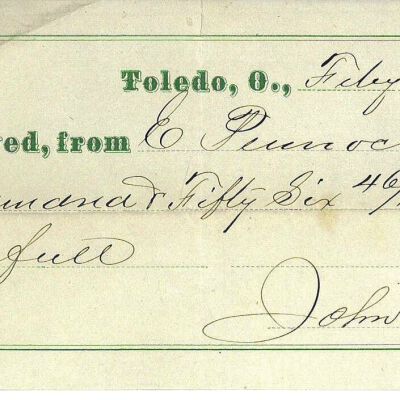 Toledo, O., Feby
ved, from E Pennoc
& Fifty Six 46/
full
John